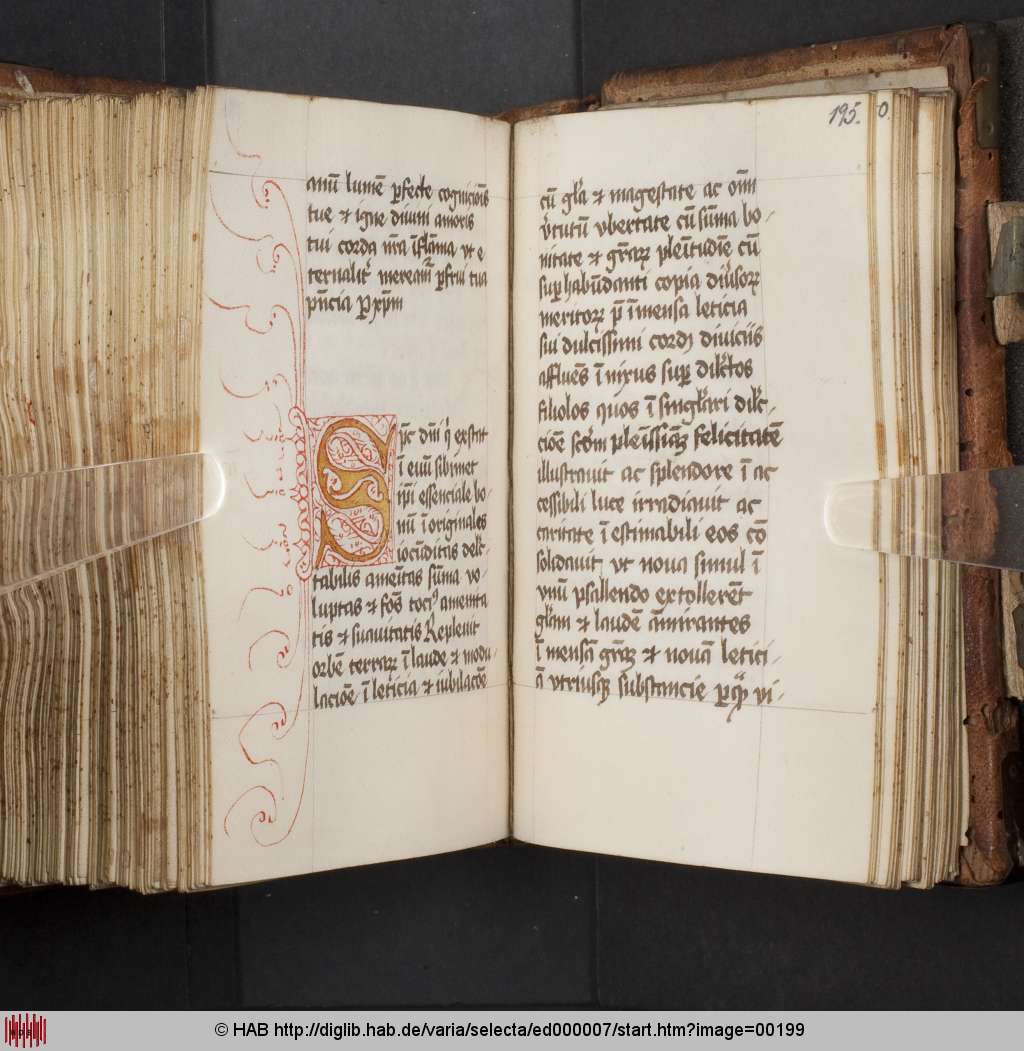 amū lumē ꝑfecte cognicioīs
tue & igne diuini amoris
tui corda nr̄a īflāma vt e
ternalit̓ meream̄ ꝑfrui tua
pn̄cia Ꝑ xp̄m
dn̄i q̓ exstat
ī euū sibimet
ip̄i essenciale bo-
nū ī originales
iocūditas delc̄
tabilis amēitas sūma vo-
luptas & fōs toci⁹ amenita
tis & suauitatis Repleuit
orbē terraꝝ ī laude & modu-
laciōe ī leticia & iubilacōe
195.
cū gl̄a & magestate ac om̄i
v̓tutū vbertate cū sūma bo-
nitate & gr̄aꝝ plēitudīe cū
suꝑhabūdanti copia diu̓soꝝ
meritoꝝ p̄ īmensa leticia
sui dulcissimi cord̓ diuiciis
affluēs īnixus suꝑ dilc̄tos
filiolos quos ī singl̓ari dilc̄-
cioē scd̄m plēissiā felicitatē
illustrauit ac splendore ī ac
cessibili luce irradiauit ac
caritate ī estimabili eos cō
solidauit vt noua simul ī
vnū psallendo extollerēt
gl̄iam & laudē āmirantes
īmensā gr̄aꝫ & nouā letici-
ā vtriusqꝫ substancie ꝑ q̄ꝫ vi-
© HAB http://diglib.hab.de/varia/selecta/ed000007/start.htm?image=00199